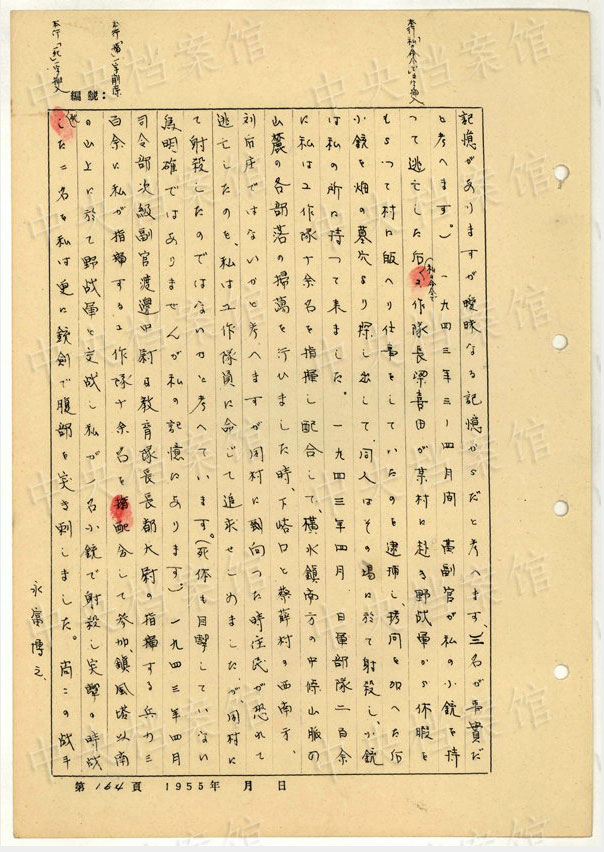 記憶がありますが曖昧なる記憶からだと考へます、三名が事実だ
と考へます。) 一九四三年三-四月間 高副官が私の小銃を持
つて逃亡した后(私の命令で)工作隊長梁喜田が某村に赴き野战軍から休暇を
もらつて村に皈へり仕事をしていたのを逮捕し拷問を加へた后
小銃を畑の墓穴より探し出して、同人はその場に於て射殺し、小銃
は私の所に持つて来ました。一九四三年四月 日軍部隊二百余
に私は工作隊十余名を指揮し配合して、横水鎮南方の中條山脈の
山麓の各部落の掃蕩を行ひました時、下峪口と蔡薛村の西南方、
刘家庄ではないかと考へますが同村に向つた時住民が恐れて
逃亡したのを、私は工作隊員に命じて追求せしめましたが、同村に
て射殺したのではないかと考へています。(死体も目撃していない
為明確ではありませんが私の記憶にあります。) 一九四三年四月
司令部次級副官渡邊中尉日教育隊長長都大尉の指揮する兵力三
百余に私が指揮する工作隊十余名を配分して参加、鎮風塔以南
の山上に於て野战軍と交战し私が一名小銃で射殺し突撃の時战
死した二名を私は更に銃剣で腹部を突き刺しました。尚この战斗
永富博之、
編號：
本行「私の命令で」五字挿入
本行「揮」一字削除
本行「死」一字挿入
第164頁 1955年 月 日
中央档案馆